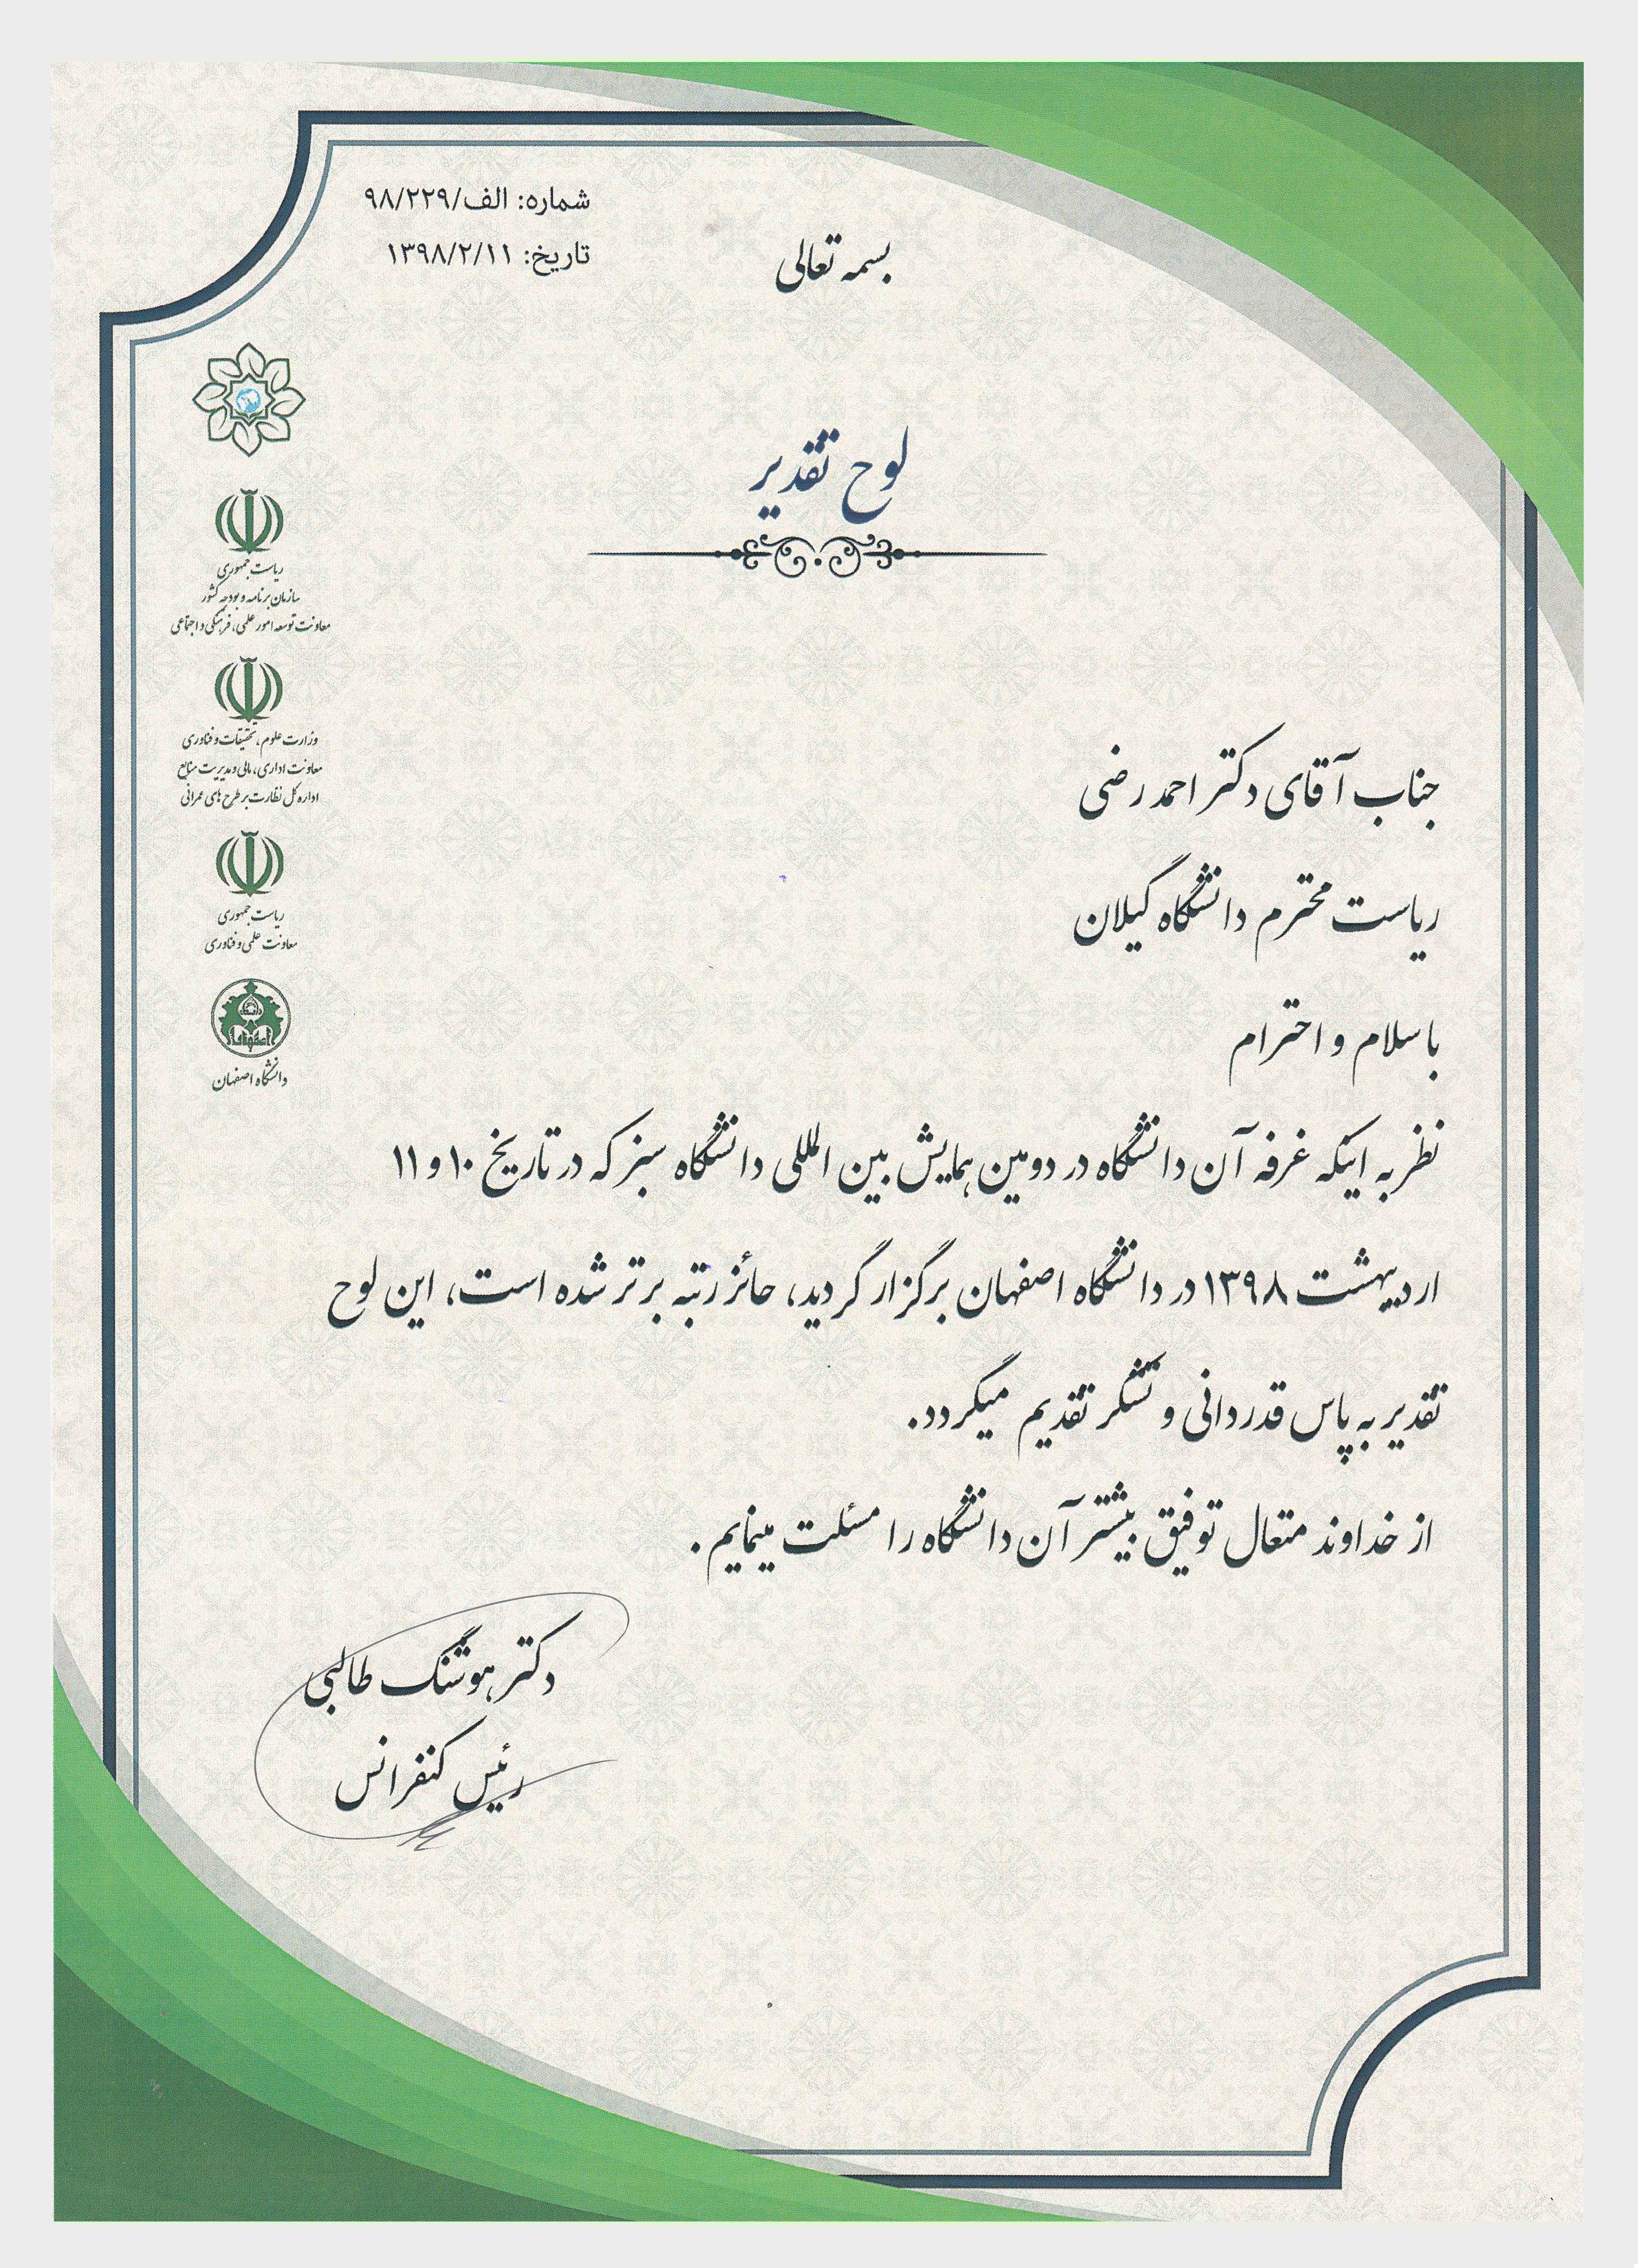 شماره: الف/۹۸/۲۲۹
تاریخ: ۱۳۹۸/۲/۱۱
بسمه تعالی
لوح تقدیر
ریاست جمهوری
سازمان برنامه و بودجه کشور
معاونت توسعه امور علمی، فرهنگی و اجتماعی
وزارت علوم، تحقیقات و فناوری
معاونت اداری، مالی و مدیریت منابع
اداره کل نظارت بر طرح های عمرانی
ریاست جمهوری
معاونت علمی و فناوری
دانشگاه اصفهان
جناب آقای دکتر احمد رضی
ریاست محترم دانشگاه گیلان
با سلام و احترام
نظر به اینکه غرفه آن دانشگاه در دومین همایش بین المللی دانشگاه سبز که در تاریخ ۱۰ و ۱۱
اردیبهشت ۱۳۹۸ در دانشگاه اصفهان برگزار گردید، حائز رتبه برتر شده است، این لوح
تقدیر به پاس قدردانی و تشکر تقدیم میگردد.
از خداوند متعال توفیق بیشتر آن دانشگاه را مسئلت مینمایم.
دکتر هوشنگ طالبی
رئیس کنفرانس